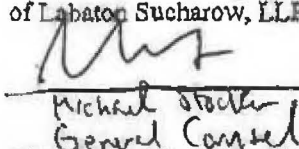 of Labaton Sucharow, LLP
Michael Stocker
General Counsel